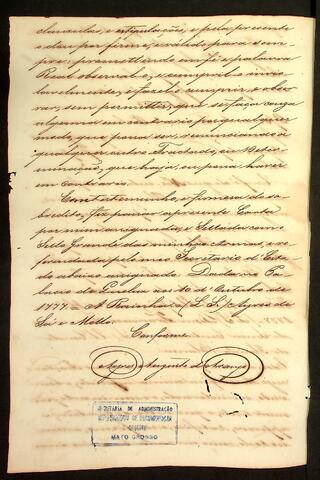 clausulas, e estipulações, e pela presente
o dou por firme, e valido para sem-
pre; promettendo em fé e palavra
Real observal-o, e cumpril-o invio-
lavelmente, e fazel-o cumprir, e obser-
var, sem permittir, que se faça couza
alguma em contrario por qualquer
modo, que possa ser, renunciando a
qualquer outro Tractado, ou Deter-
minação, que haja, ou possa haver
em contrario.
Em testemunho, e firmeza do so-
bredito, fiz passar a presente Carta
por mim assignada, e Sellada com o
Sello Grande das minhas Armas, e re-
ferendada pelo meu Secretario d'Esta-
do abaixo assignado. Dada no Pa-
lacio de Queluz aos 10 de Outubro de
1777. - A Rainha. (L. S.) Ayres de
Sá e Mello.
Conforme
Augusto
SECRETARIA DE ADMINISTRAÇÃO
CUIABÁ
MATO GROSSO